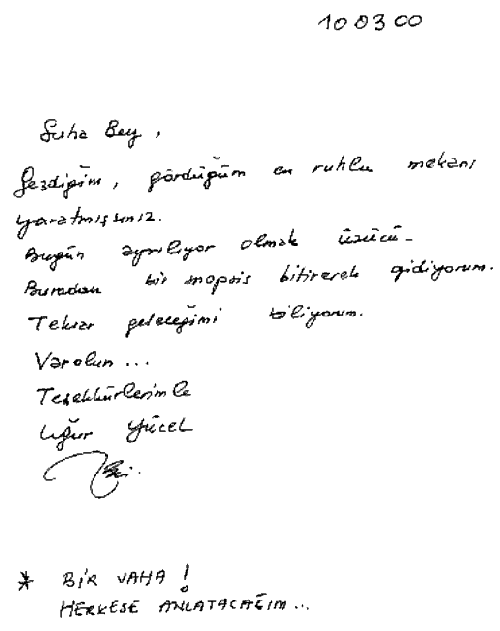 10 03 00
Suha Bey,
Gezdiğim, gördüğüm en ruhlu mekanı
yaratmışsınız.
Bugün ayrılıyor olmak üzücü.
Buradan bir sinopsis bitirerek gidiyorum.
Tekrar geleceğimi biliyorum.
Varolun...
Teşekkürlerimle
Uğur Yücel
* BİR VAHA!
HERKESE ANLATACAĞIM...